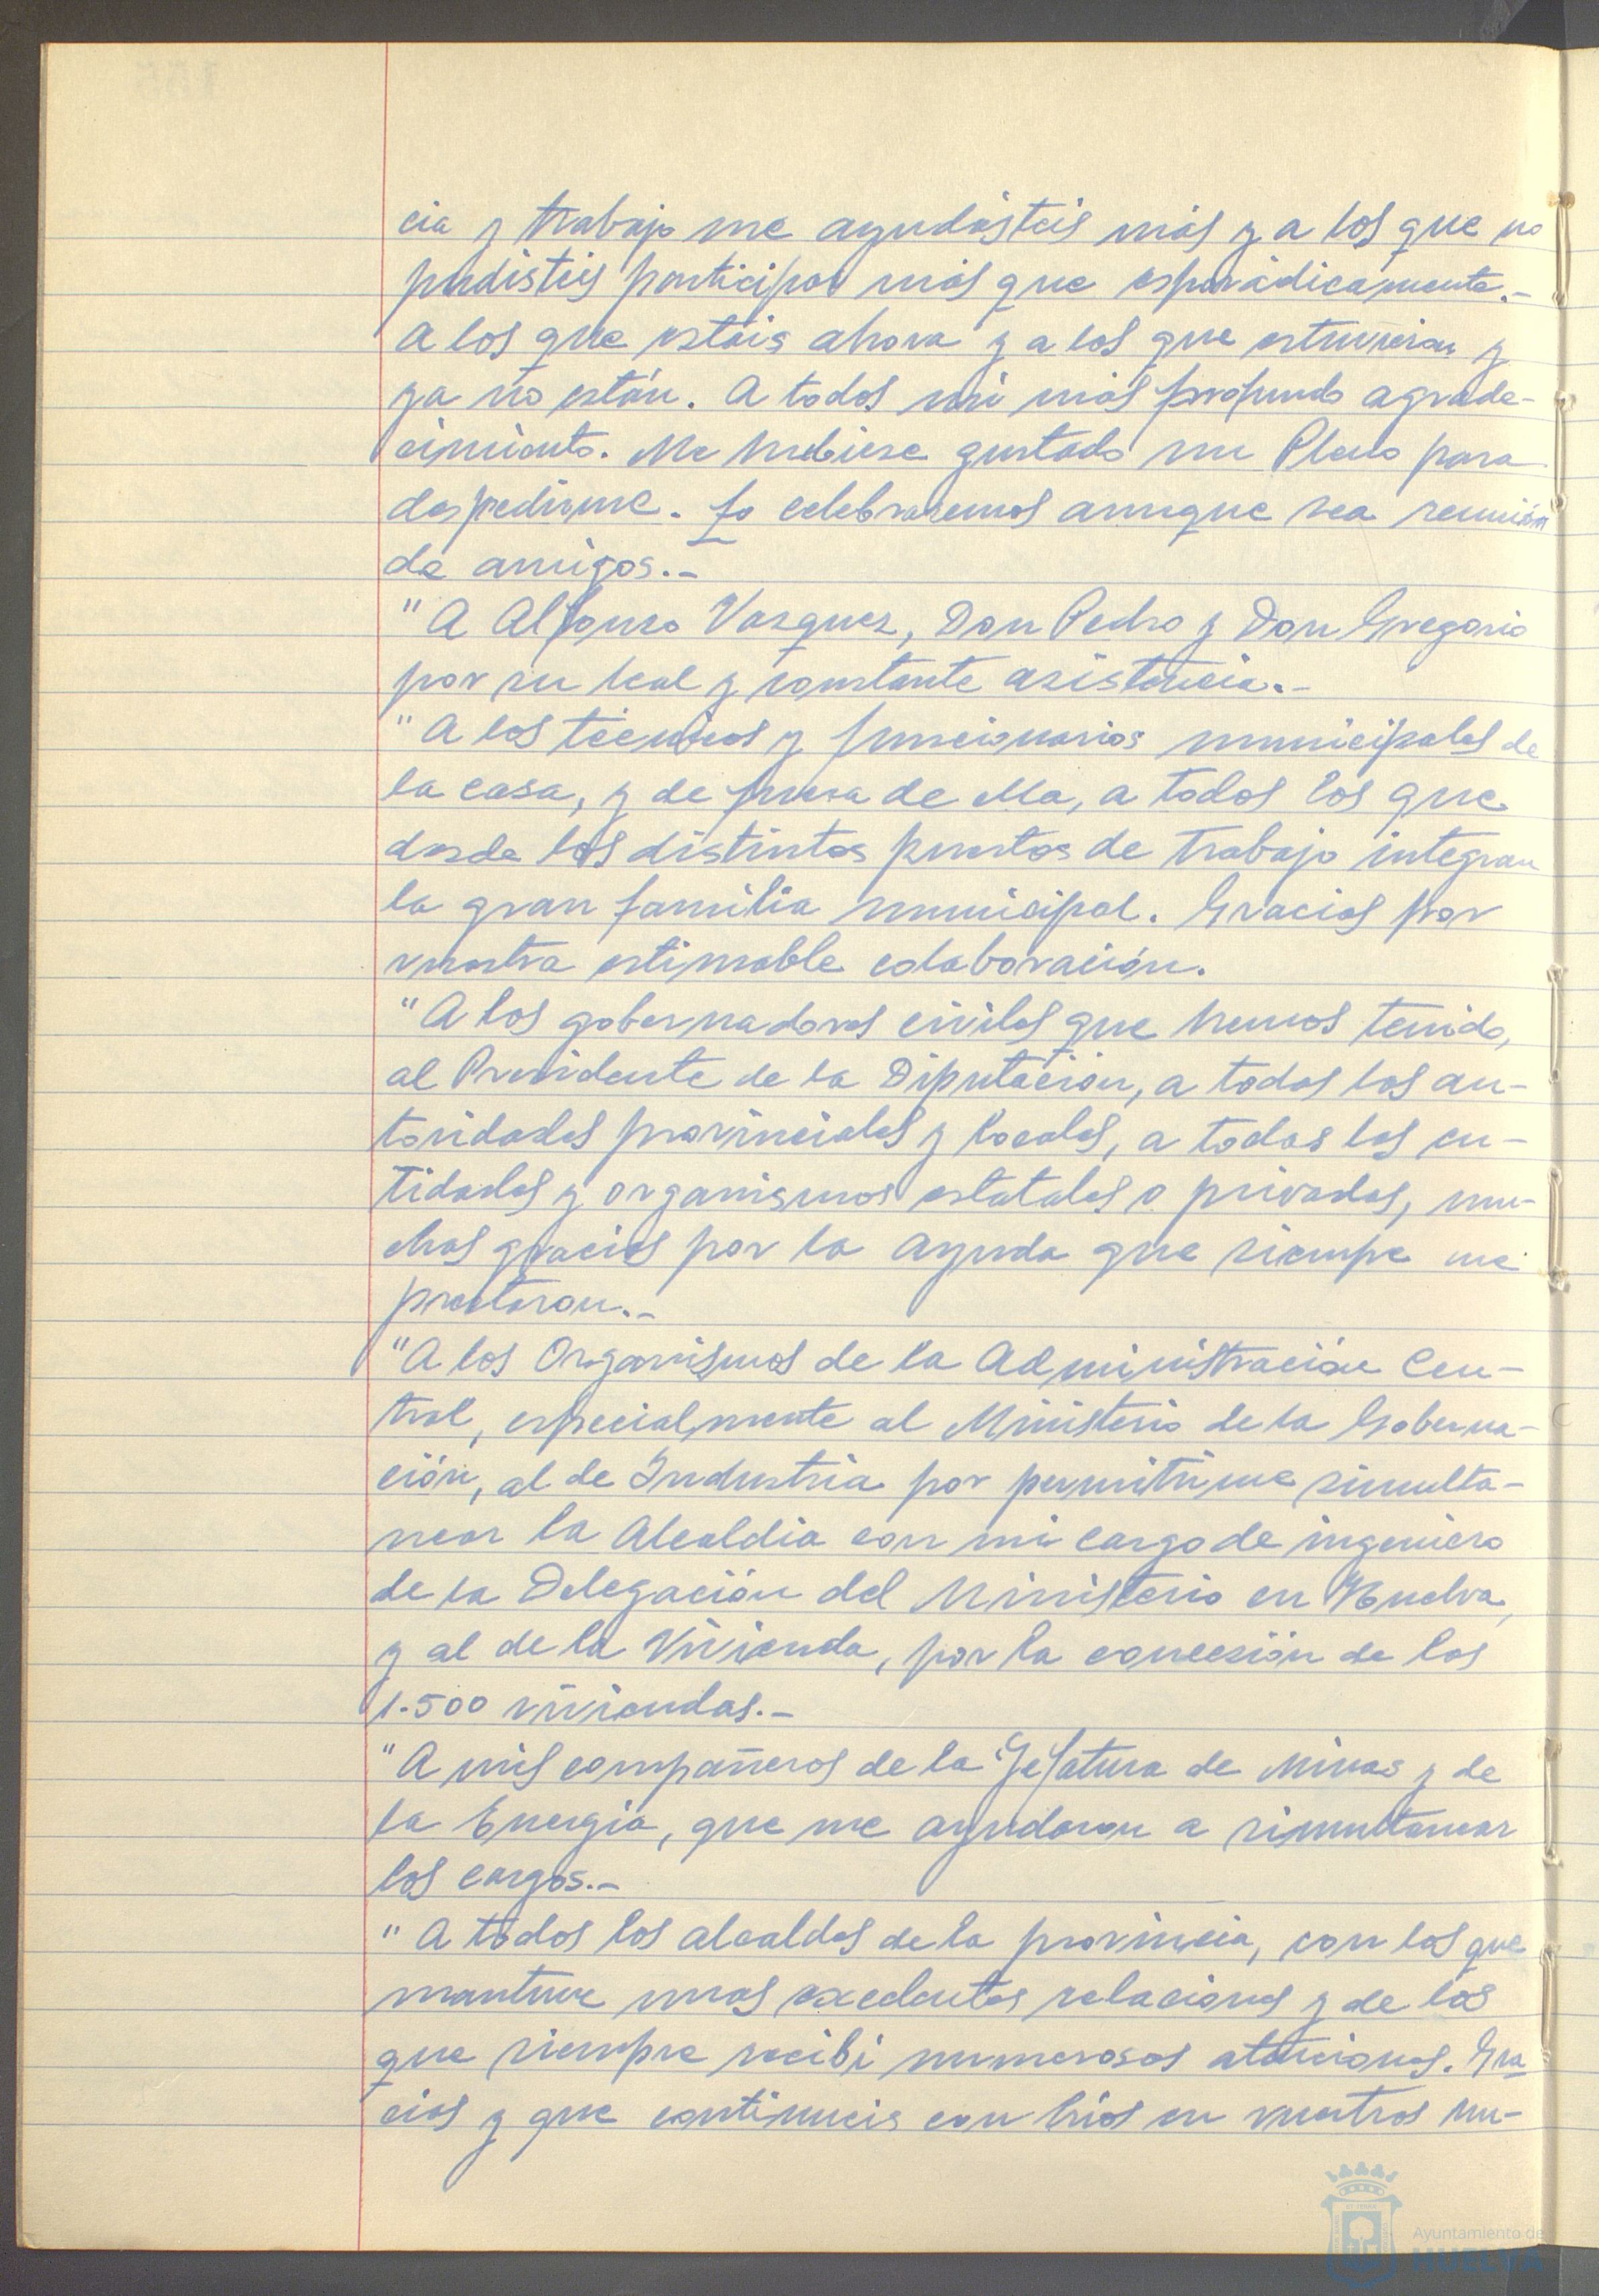 cia y trabajo me ayudásteis más y a los que no
pudisteis participar más que esporádicamente.-
A los que estáis ahora y a los que estuvieron y
ya no están. A todos mi más profundo agrade-
cimiento. Me hubiese gustado un Pleno para
despedirme. Lo celebraremos aunque sea reunión
de amigos.-
"A Alfonso Vazquez, Don Pedro y Don Gregorio
por su leal y constante asistencia.-
"A los técnicos y funcionarios municipales de
la casa, y de fuera de ella, a todos los que
desde los distintos puestos de trabajo integran
la gran familia municipal. Gracias por
vuestra estimable colaboración.
"A los gobernadores civiles que hemos tenido,
al Presidente de la Diputación, a todas las au-
toridades provinciales y locales, a todas las en-
tidades y organismos estatales o privados, mu-
chas gracias por la ayuda que siempre me
prestaron.-
"A los Organismos de la Administración Cen-
tral, especialmente al Ministerio de la Goberna-
ción, al de Industria por permitirme simulta-
near la Alcaldia con mi cargo de ingeniero
de la Delegación del Ministerio en Huelva,
y al de la Vivienda, por la concesión de las
1.500 viviendas.-
"A mis compañeros de la Jefatura de Minas y de
la Energia, que me ayudaron a simultanear
los cargos.-
"A todos los alcaldes de la provincia, con los que
mantuve unas excelentes relaciones y de los
que siempre recibí numerosas atenciones. Gra
cias y que continueis con brios en vuestros mu-
Ayuntamiento de
HUELVA